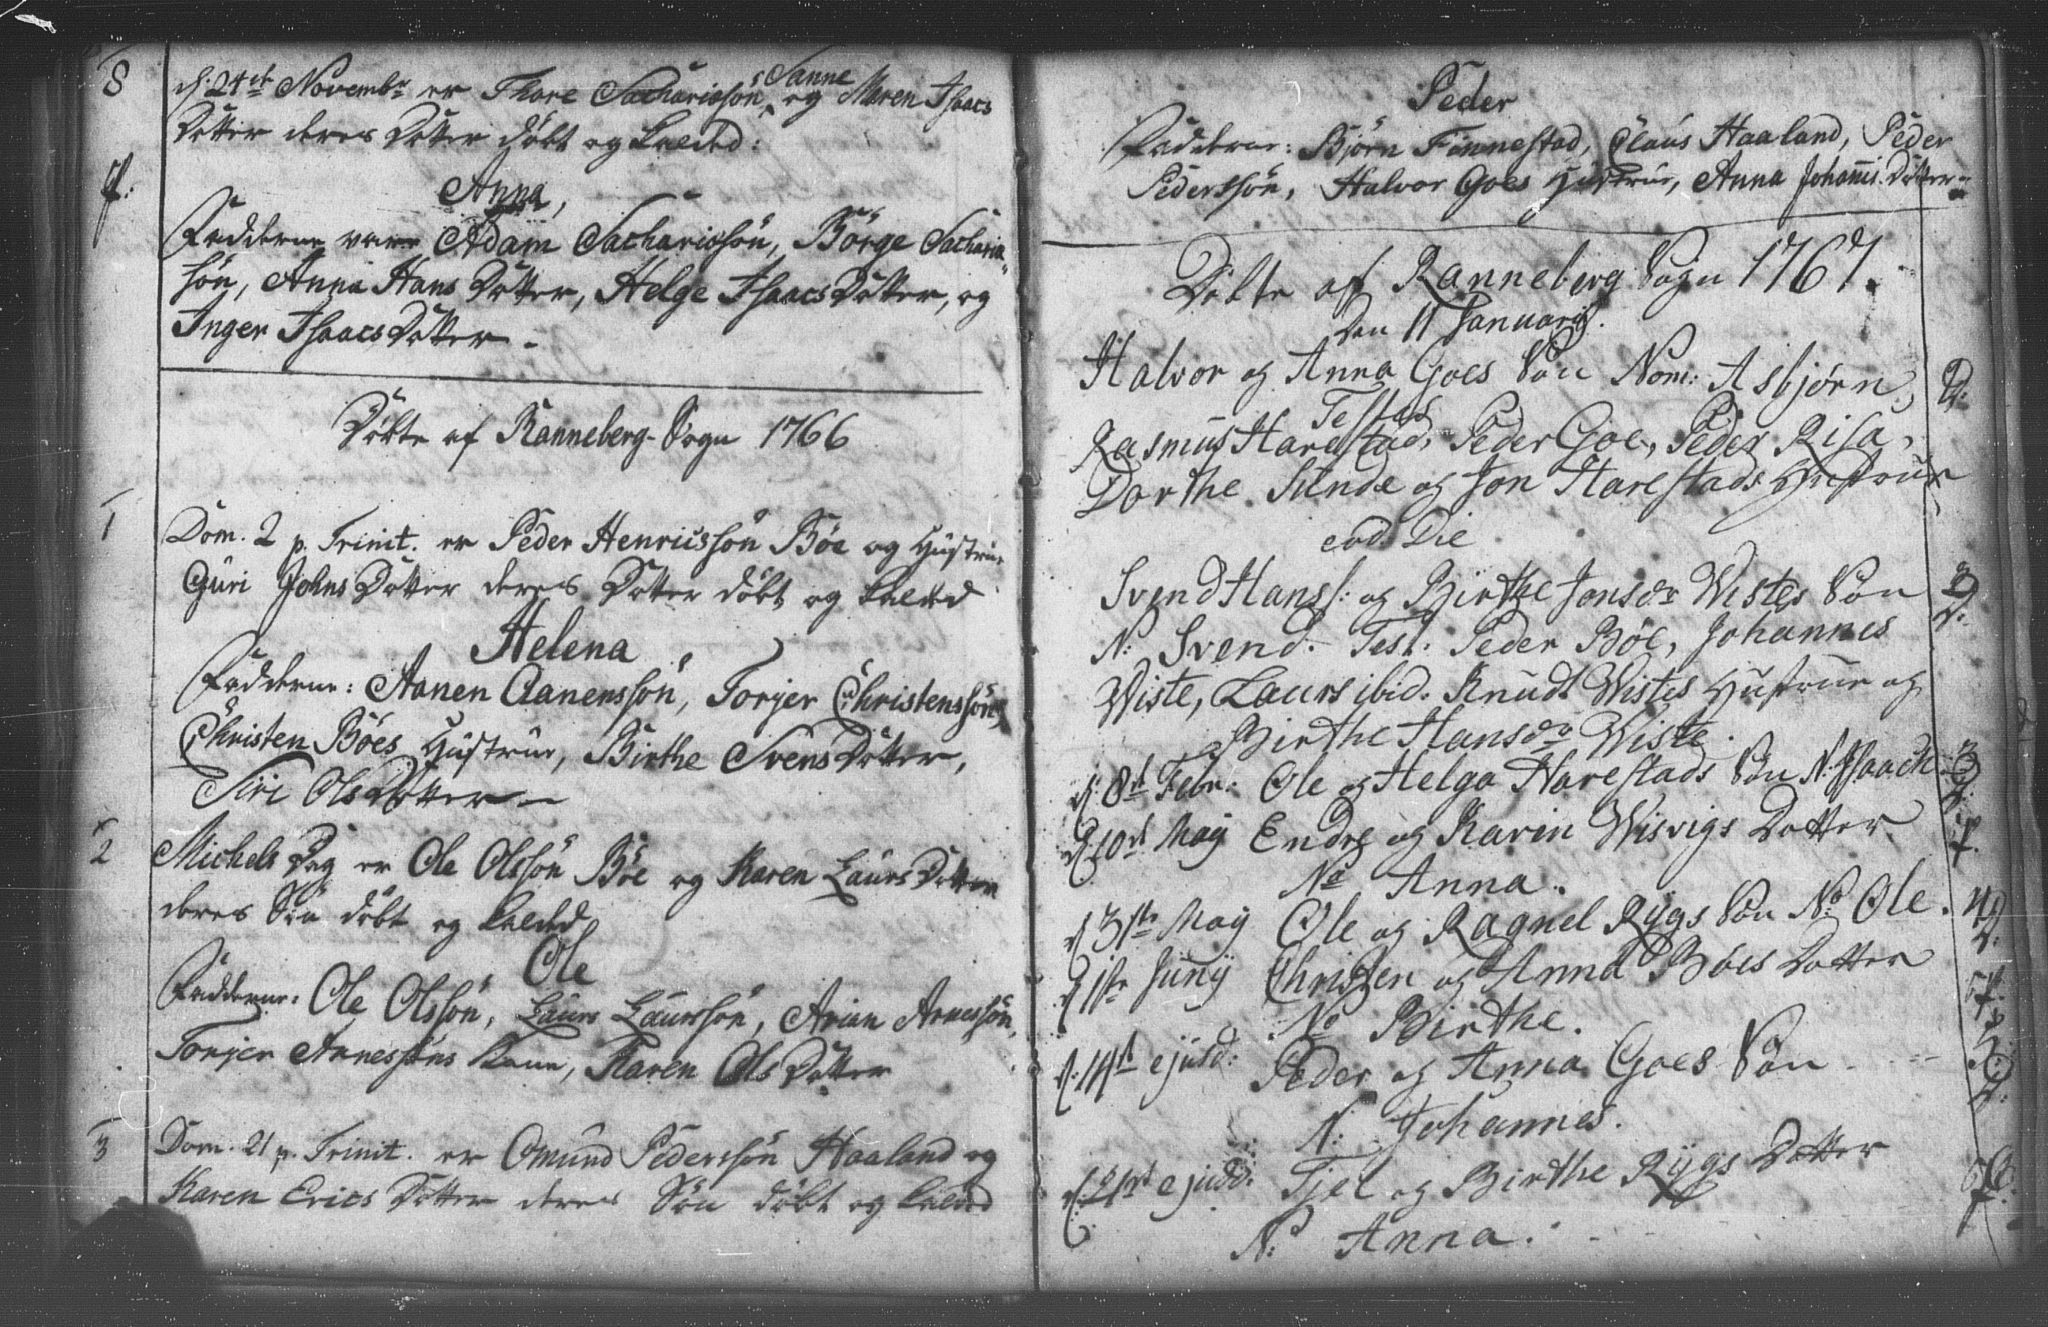 8 d: 24de Novembr er Thore Sachariæsøn Sanne og Maren Isaacs
Dotter deres Dotter døbt og kalded:
Anna,
Fadderne vare Adam Sachariæsøn, Børge Sacharia-
søn, Anna Hans Dotter, Helge Isaacs Dotter, og
Inger Isaacs Dotter -
Døbte af Ranneberg-Sogn 1766
1 Dom. 2 p. Trinit. er Peder Henricssøn Bøe og Hustrue
Guri Johns Dotter deres Dotter døbt og kaldet
Helena
Fadderne: Aanen Aanenssøn, Torjer Christenssøn,
Christen Bøes Hustrue, Birthe Svens Dotter,
Siri Ols Dotter -
2 Michels Dag er Ole Olssøn Bøe og Karen Laurs Dotter
deres Søn døbt og kaldet
Ole
Fadderne: Ole Olssøn, Laurs Laurssøn, Arian Arnessøn,
Torjer Arnessøns Kone, Karen Ols Dotter
3 Dom. 21 p. Trinit. er Omund Pederssøn Haaland og
Karen Erics Dotter deres Søn døbt og kaldet
Peder
Fadderne: Bjørn Finnestad, Claus Haaland, Peder
Pederssøn, Halvor Goes Hustrue, Anna Johannis Dotter
Døbte af Ranneberg Sogn 1767.
Den 11 Januarij.
Halvor og Anna Goes Søn Nom: Asbjørn
Test
Rasmus Harestad, Peder Goe, Peder Risa,
Dorthe Sunde og Jon Harestads Hustrue
eod Die
Svend Hans s: og Birthe Jonsdr Wistes Søn
N: Svend. Test. Peder Bøe, Johannes
Wiste, Laurs ibid. Knudt Wistes Hustrue og
Birthe Hansdr Wiste.
d: 8d Febr: Ole og Helga Harestads Søn N: Isaach 3
d 10d Maij Endre og Karin Wisvigs Dotter
No Anna.
d 31te Maij Ole og Ragnel Rygs Søn No Ole. 4
d 1ste Junij Christen og Anna Bøes Dotter 5
No Birthe.
d: 14d ejusd: Peder og Anna Goes Søn
N: Johannes.
d: 21de ejusd: Tjel og Birthe Rygs Dotter 6
N: Anna.